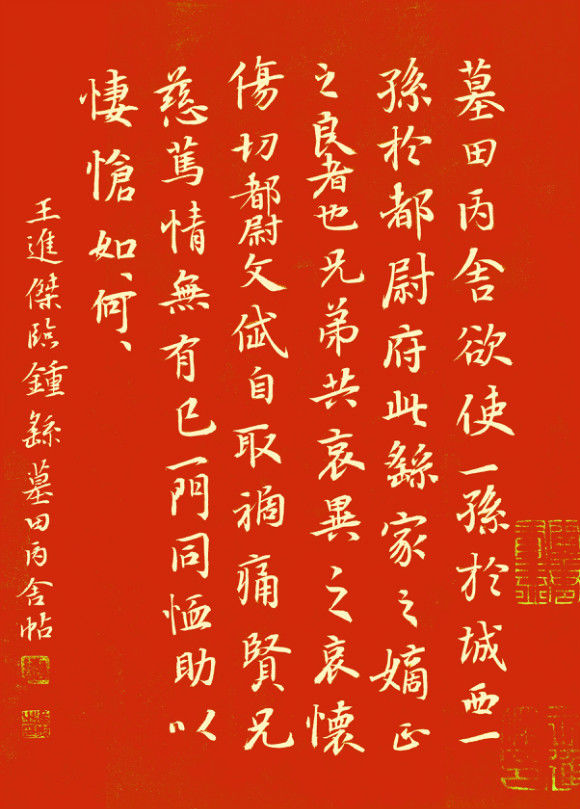 墓田丙舍欲使一孫於城西一
孫於都尉府此繇家之嫡正
之良者也兄弟共哀異之哀懷
傷切都尉文岱自取禍痛賢兄
慈篤情無有已一門同恤助以
悽愴如何
王進傑臨鍾繇墓田丙舍帖